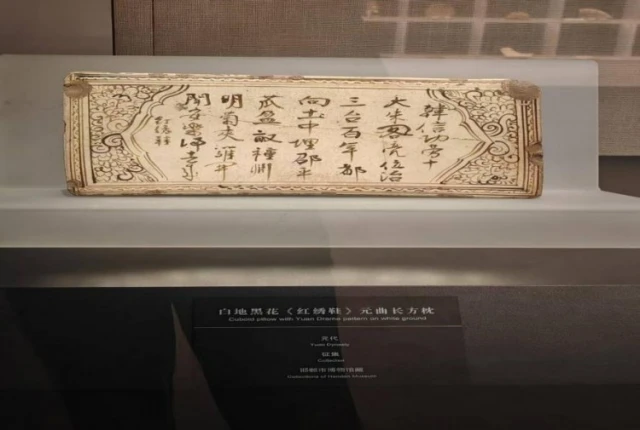 韓信功劳十
大朱位治
三台百年都
向土中埋邵平
瓜盆敢種渊
明菊夫
開
红绣鞋
白地黑花《红绣鞋》元曲长方枕
Cuboid pillow with Yuan Drama pattern on white ground
元代
Yuan Dynasty
征集
Collection
邯郸市博物馆藏
Collections of Handan Museum